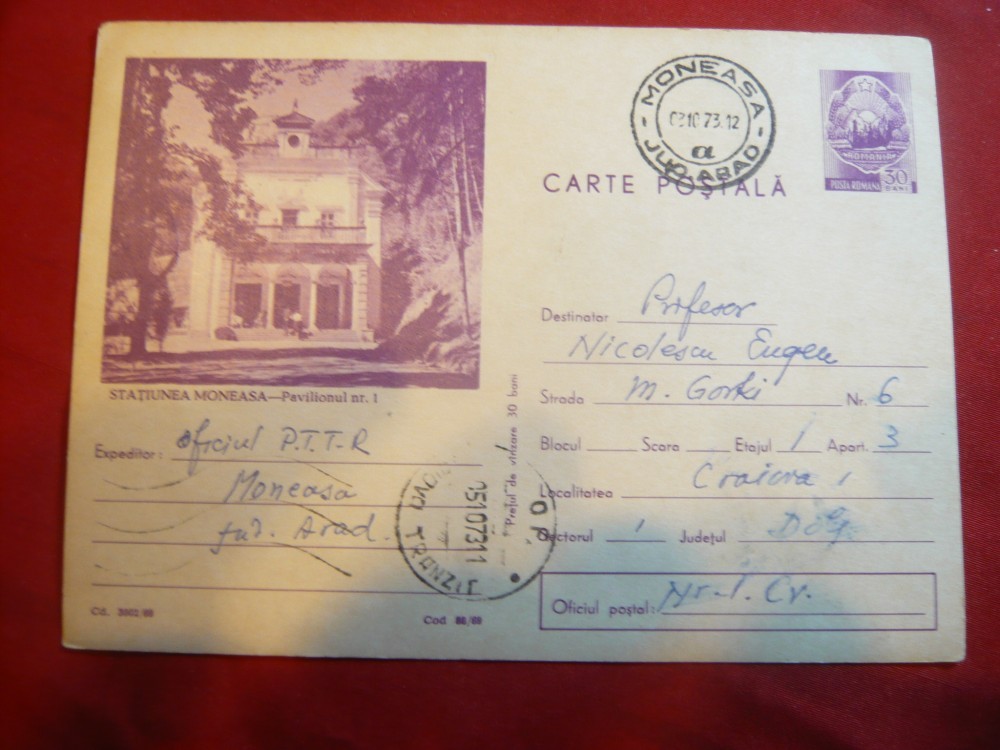 MONEASA
03 10 73.12
a
JUD. ARAD
CARTE POȘTALĂ
ROMANIA
POSTA ROMANA 30 BANI
STAȚIUNEA MONEASA—Pavilionul nr. 1
Expeditor: Oficiul P.T.T-R
Moneasa
jud. Arad.
Cd. /69
Cod 88/69
Prețul de vînzare 30 bani
051073 11
TRANZIT
Destinatar Profesor
Nicolescu Eugen
Strada M. Gorki Nr. 6
Blocul Scara Etajul 1 Apart. 3
Localitatea Craiova 1
Sectorul 1 Județul Dolj
Oficiul poștal: Nr. 1. Cv.